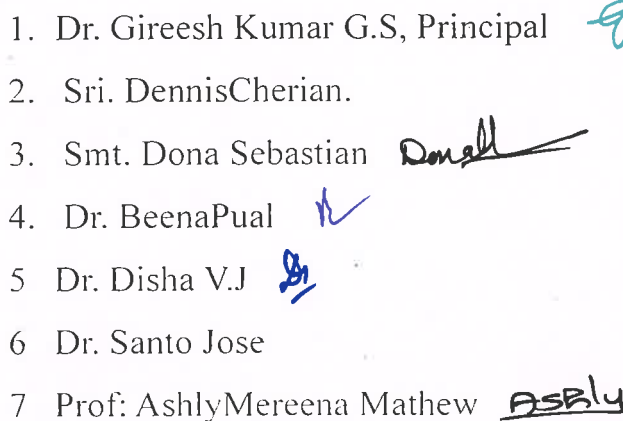 1. Dr. Gireesh Kumar G.S, Principal
2. Sri. DennisCherian.
3. Smt. Dona Sebastian
4. Dr. BeenaPual
5 Dr. Disha V.J
6 Dr. Santo Jose
7 Prof: AshlyMereena Mathew Ashly